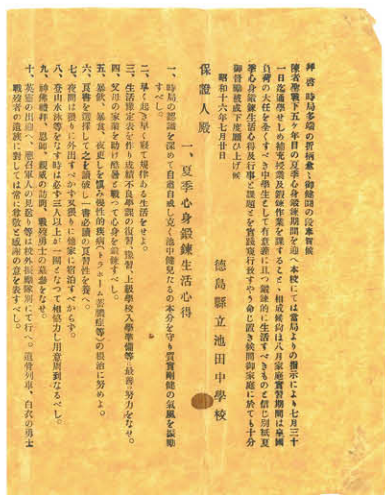 拝啓 時局多端の
陳者聖戦下五ヶ年目の夏季心身鍛錬期間を迎へ本校にては當局よりの指示により七月三十
一日迄通學せしめ補充授業及鍛錬作業を課することと相成候
負荷の大任を全くすべき中學生として有意義に且つ鍛錬的に生活すべきものと信じ別紙夏
季心身鍛錬生活心得及行事と課題とを實踐
御督勵被成下度願上げ候
昭和十六年七月廿日
德島縣立池田中學校
保證人殿
一、夏季心身鍛錬生活心得
一、時局の認識を深めて自肅自戒し克く池中健兒たるの本分を守り質實剛健の氣風を振勵
すべし。
二、早く起き早く寢て規律ある生活をせよ。
三、生活豫定表を作り成績不良學課の復習、豫習、上級學校入學準備等に最善の努力をなせ。
四、父母の家業を助け酷暑と戰つて心身を鍛錬すべし。
五、暴飲、暴食、夜更しを愼み慢性的疾病(トラホーム、蓄膿症等)の根治に努めよ。
六、良書を選擇して之を讀破し一書必讀の良習性を養へ。
七、夜間は濫りに外出すべからず又濫りに他家に宿泊すべからず。
八、登山水泳等をなす時は必ず三人以上が一團となつて相協力し用意周到なるべし。
九、神佛禮拜、恩師、親戚の訪問、戰歿勇士の墓參をなせ。
十、英靈の出迎へ、應召軍人の見送り等は校外鍛錬隊別にて行へ。遺骨列車、白衣の勇士
戰歿者の遺族に對しては常に敬虔と感謝の意を表すべし。